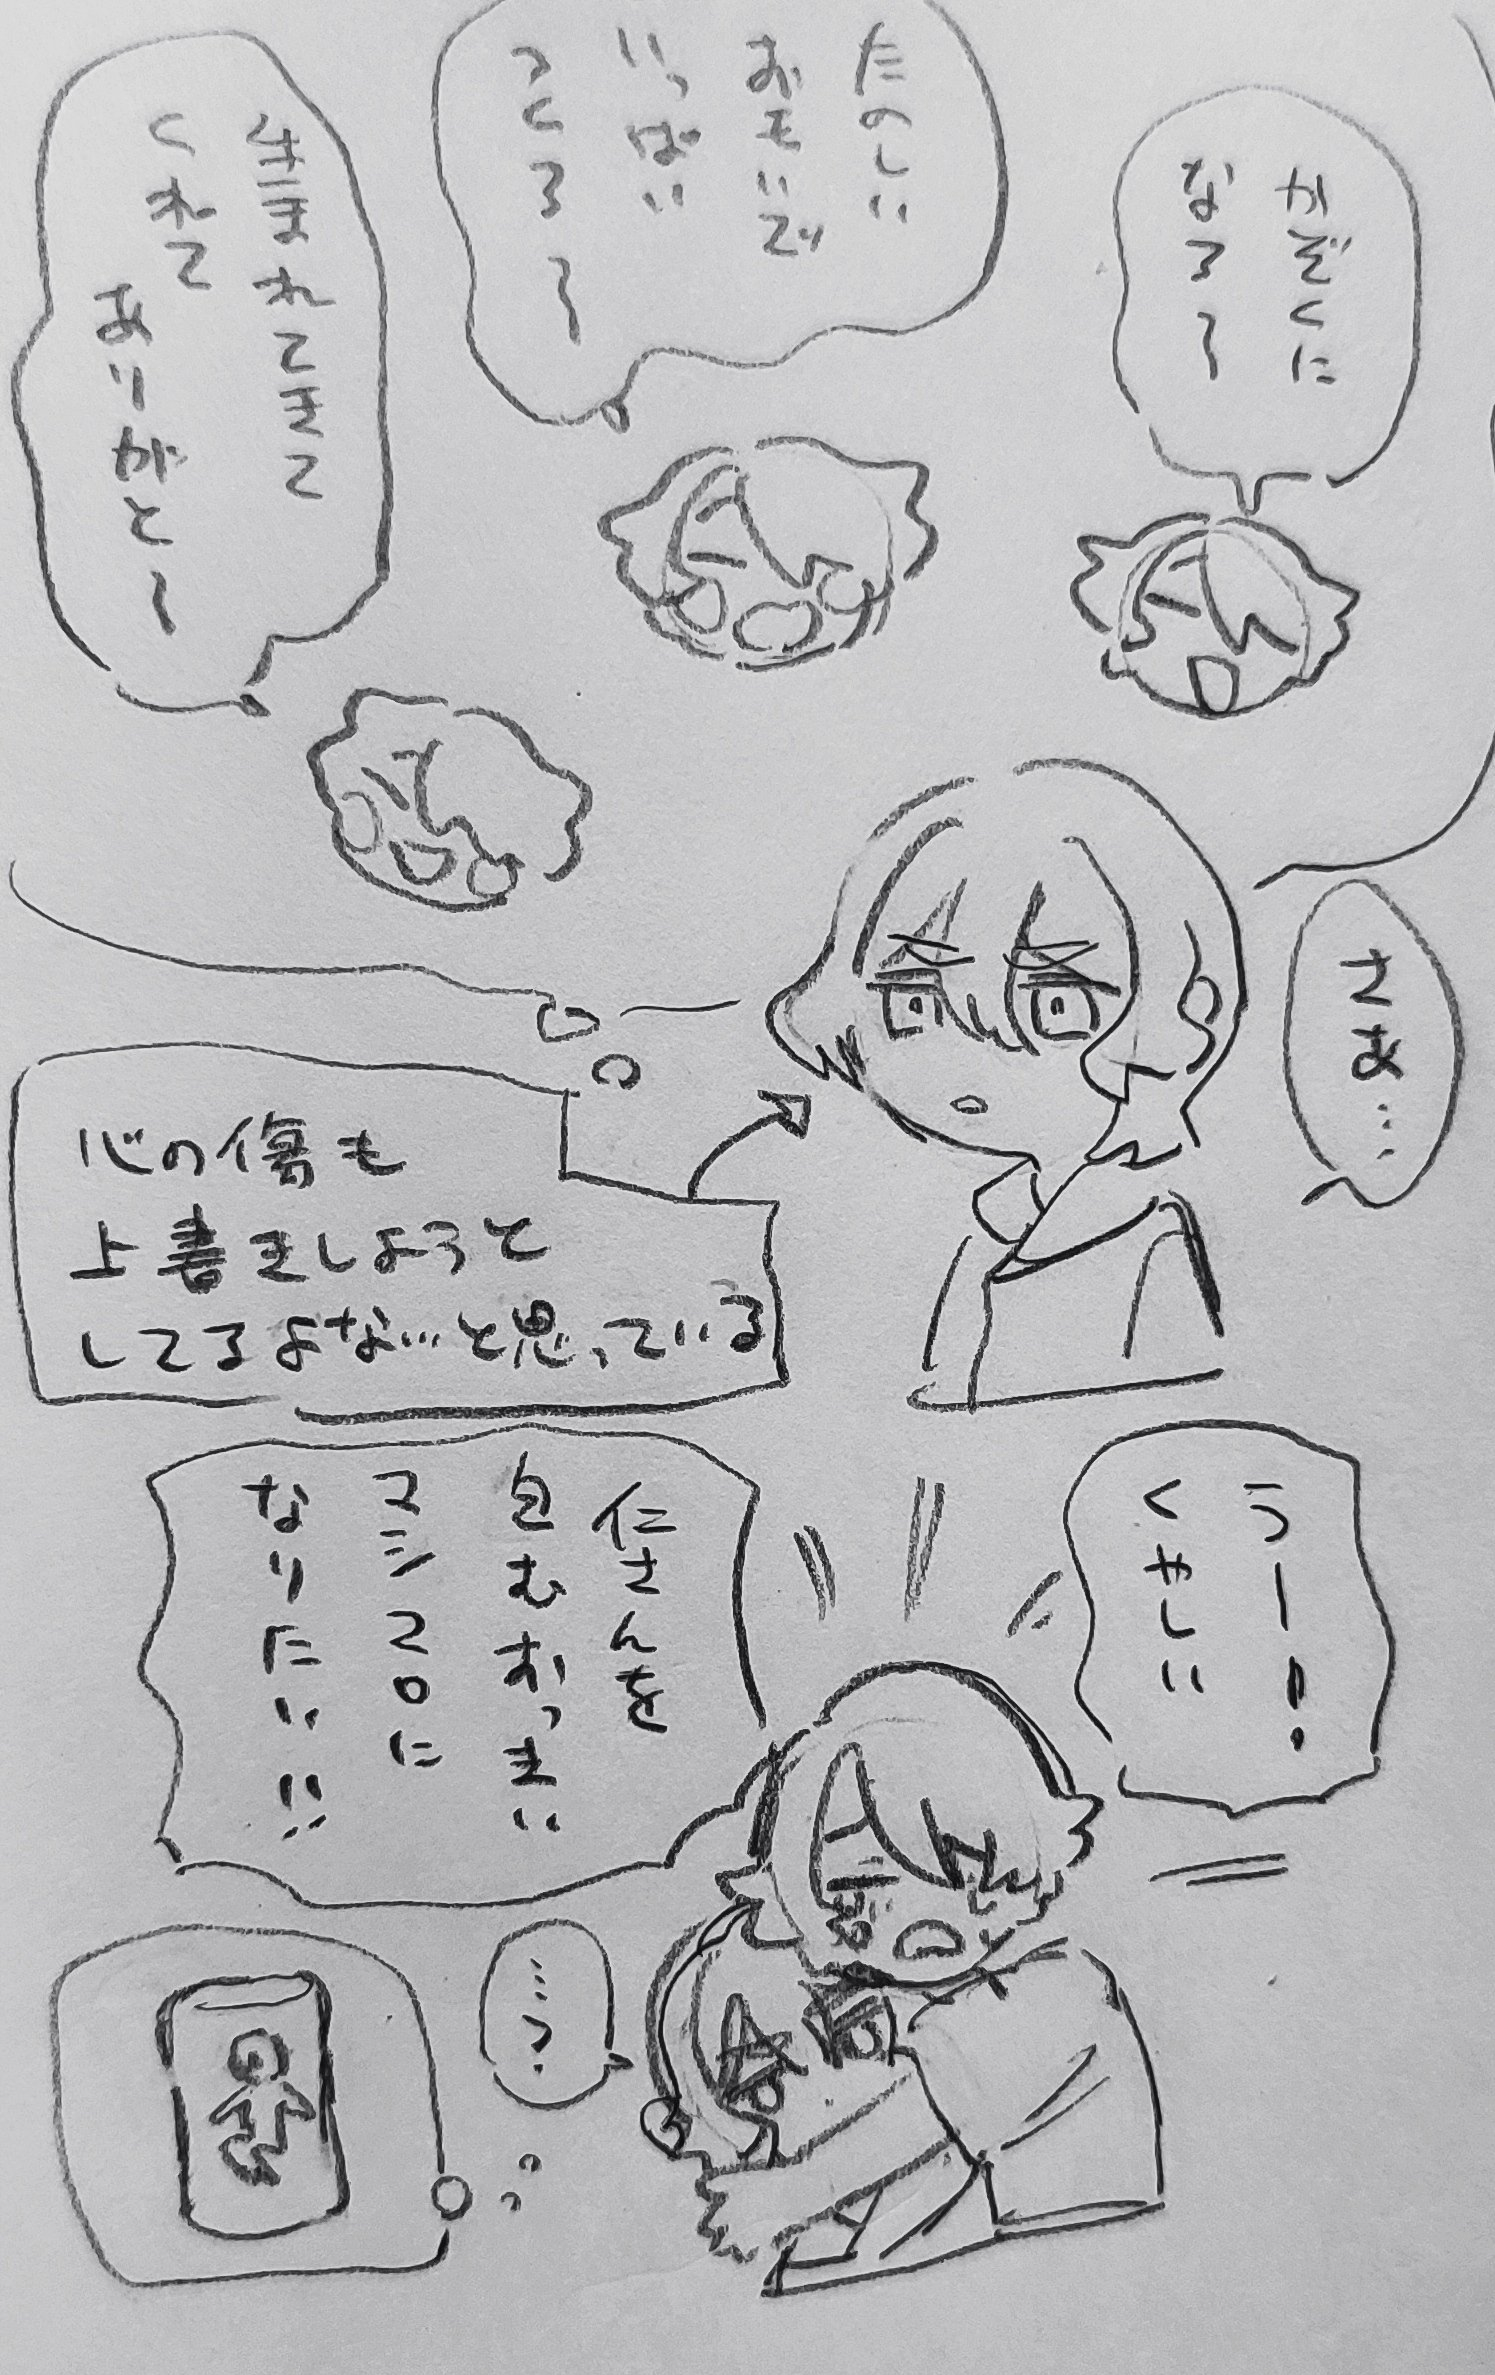 かぞくに
なろ〜
たのしい
おもいで
いっぱい
つくろ〜
生まれてきて
くれて
ありがと〜
さあ…
心の傷も
上書きしようと
してるよな…と思っている
うー!
くやしい
仁さんを
包むおっきい
マシマロに
なりたい!!